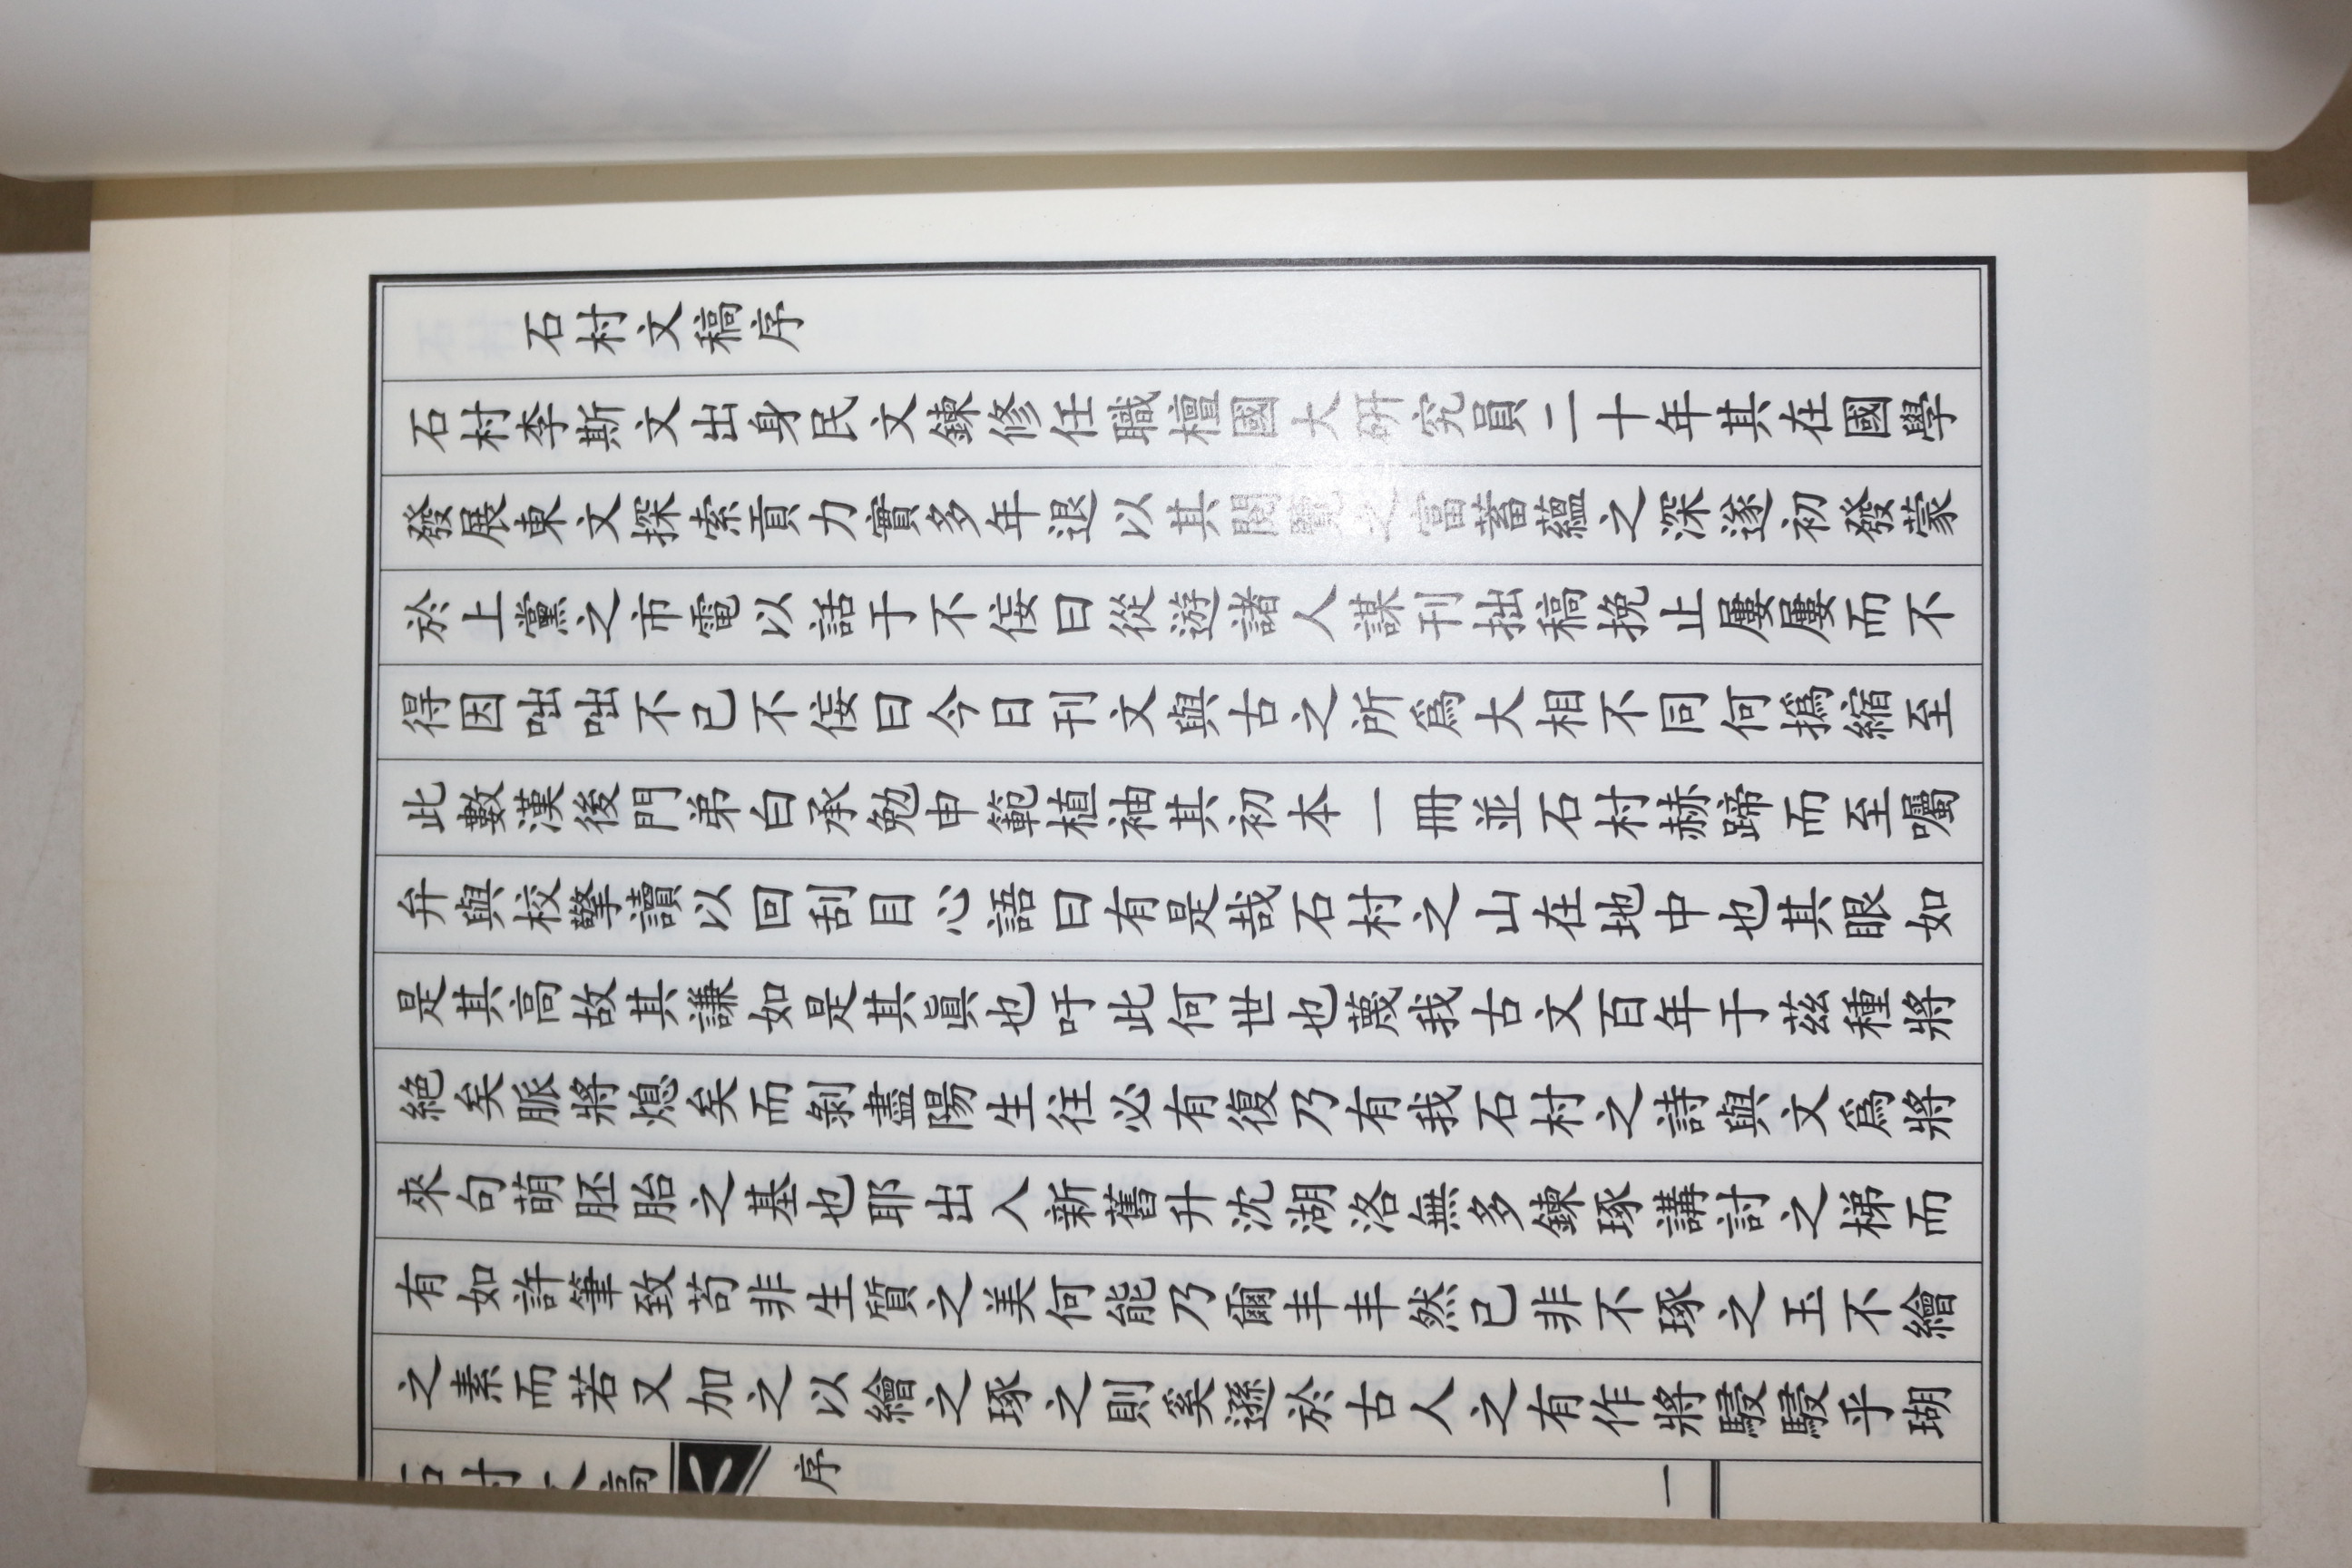 石村文稿序
石村李斯文出身民文鍊修任職檀國大硏究員二十年其在國學
發展東文探索貢力實多年退以其閱覽之富蓄蘊之深遂初發蒙
於上黨之市電以話于不佞曰從遊諸人謀刊拙稿挽止屢屢而不
得因咄咄不已不佞曰今日刊文與古之所爲大相不同何撝縮至
此數漢後門弟白承勉申範植袖其初本一冊並石村赫蹄而至囑
弁與校擎讀以回刮目心語曰有是哉石村之山在地中也其眼如
是其高故其謙如是其眞也吁此何世也蔑我古文百年于茲種將
絕矣脈將熄矣而剝盡陽生往必有復乃有我石村之詩與文爲將
來句萌胚胎之基也耶出入新舊升沈湖洛無多鍊琢講討之梯而
有如許筆致苟非生質之美何能乃爾丰丰然已非不琢之玉不繪
之素而若又加之以繪之琢之則奚遜於古人之有作將駸駸乎瑚
石村文稿 序 一